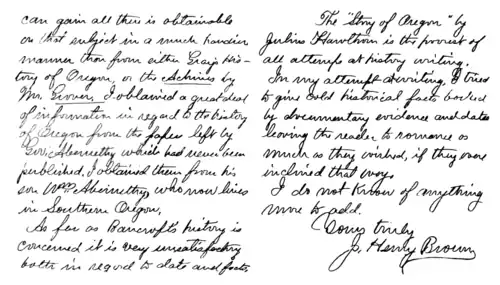 can gain all there is obtainable
on that subject in a much handier
manner than from either Grays His-
tory of Oregon, or the Archives by
Mr. Grover. I obtained a great deal
of information in regard to the history
of Oregon from the papers left by
Gov. Abernethy which had never been
published. I obtained them from his
son Wm Abernethy, who now lives
in Southern Oregon.
As far as Bancroft's history is
concerned it is very unsatisfactory
both in regard to date and facts.
The "Story of Oregon" by
Julius Hawthorn is the poorest of
all attempts at history writing.
In my attempt at writing, I tried
to give cold historical facts backed
by documentary evidence and dates
leaving the reader to romance as
much as they wished, if they were
inclined that way.
I do not know of anything
more to add.
Yours truly
J. Henry Brown